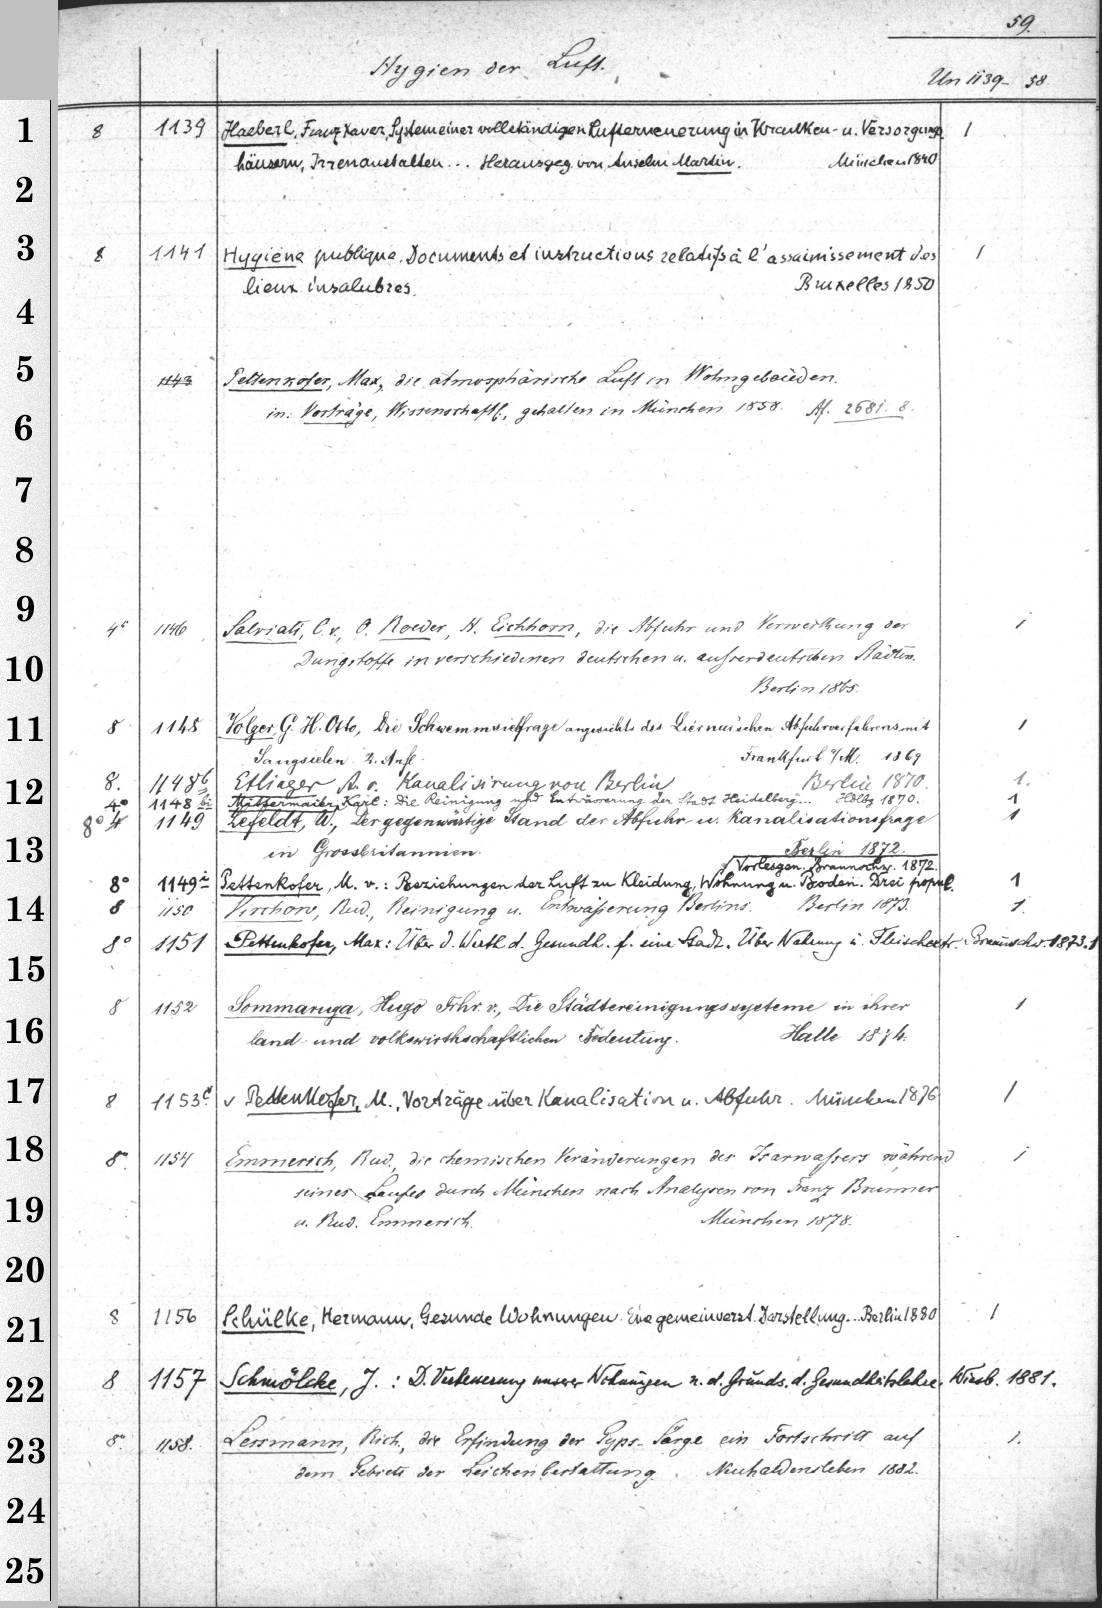 59.
Hygien der Luft.
Un 1139 - 58
1 8 1139 Haeberl, Franz Xaver, System einer vollständigen Lufterneuerung in Kranken- u. Versorgungs 1
häusern, Irrenanstalten... Herausgeg. von Anselm Martin. München 1840
2
3 8 1141 Hygiène publique. Documents et instructions relatifs à l'assainissement des 1
lieux insalubres. Bruxelles 1850
4
5 1143 Pettenkofer, Max, die atmosphärische Luft in Wohngebäuden.
6 in: Vorträge, Wissenschaftl., gehalten in München 1858. Af. 2681. 8.
7
8
9 4° 1146 Salviati, C. v., O. Roeder, H. Eichhorn, die Abfuhr und Verwerthung der 1
10 Dungstoffe in verschiedenen deutschen u. ausserdeutschen Städten.
Berlin 1865.
11 8 1148 Volger, G. H. Otto, Die Schwemmsielfrage angesichts des Liernur'schen Abfuhrverfahrens mit 1
Saugsielen 2. Aufl. Frankfurt a/M. 1869
12 8. 1148b Etlinger A. v. Kanalisirung von Berlin Berlin 1870. 1.
4° 1148 bi Mittermaier, Karl: Die Reinigung und Entwässerung der Stadt Heidelberg... Hdlbg 1870. 1
8° 4 1149 Lefeldt, W., Der gegenwärtige Stand der Abfuhr- u. Kanalisationsfrage 1
13 in Grossbritannien. Berlin 1872.
Vorlesgen. Braunschw. 1872.
8° 1149i Pettenkofer, M. v.: Beziehungen der Luft zu Kleidung, Wohnung u. Boden. Drei popul. 1
14 8 1150 Virchow, Rud., Reinigung u. Entwässerung Berlins. Berlin 1873. 1.
8° 1151 Pettenkofer, Max: Über d. Werth d. Gesundh. f. eine Stadt. Über Nahrung u. Fleischextr. Braunschw. 1873. 1
15
8 1152 Sommaruga, Hugo Frhr. v., Die Städtereinigungssysteme in ihrer 1
16 land- und volkswirthschaftlichen Bedeutung. Halle 1874.
17 8 1153d v Pettenkofer, M., Vorträge über Kanalisation u. Abfuhr. München 1876 1
18 8° 1154 Emmerich, Rud., die chemischen Veränderungen des Isarwassers während 1
seines Laufes durch München nach Analysen von Franz Brunner
19 u. Rud. Emmerich. München 1878.
20
21 8 1156 Schülke, Hermann, Gesunde Wohnungen. Eine gemeinverst. Darstellung... Berlin 1880 1
22 8 1157 Schmölcke, J.: D. Verbesserung unserer Wohnungen n. d. Grunds. d. Gesundheitslehre. Wiesb. 1881.
23 8° 1158. Lessmann, Rich., die Erfindung der Gyps-Särge ein Fortschritt auf 1.
dem Gebiete der Leichenbestattung. Neuhaldensleben 1882.
24
25